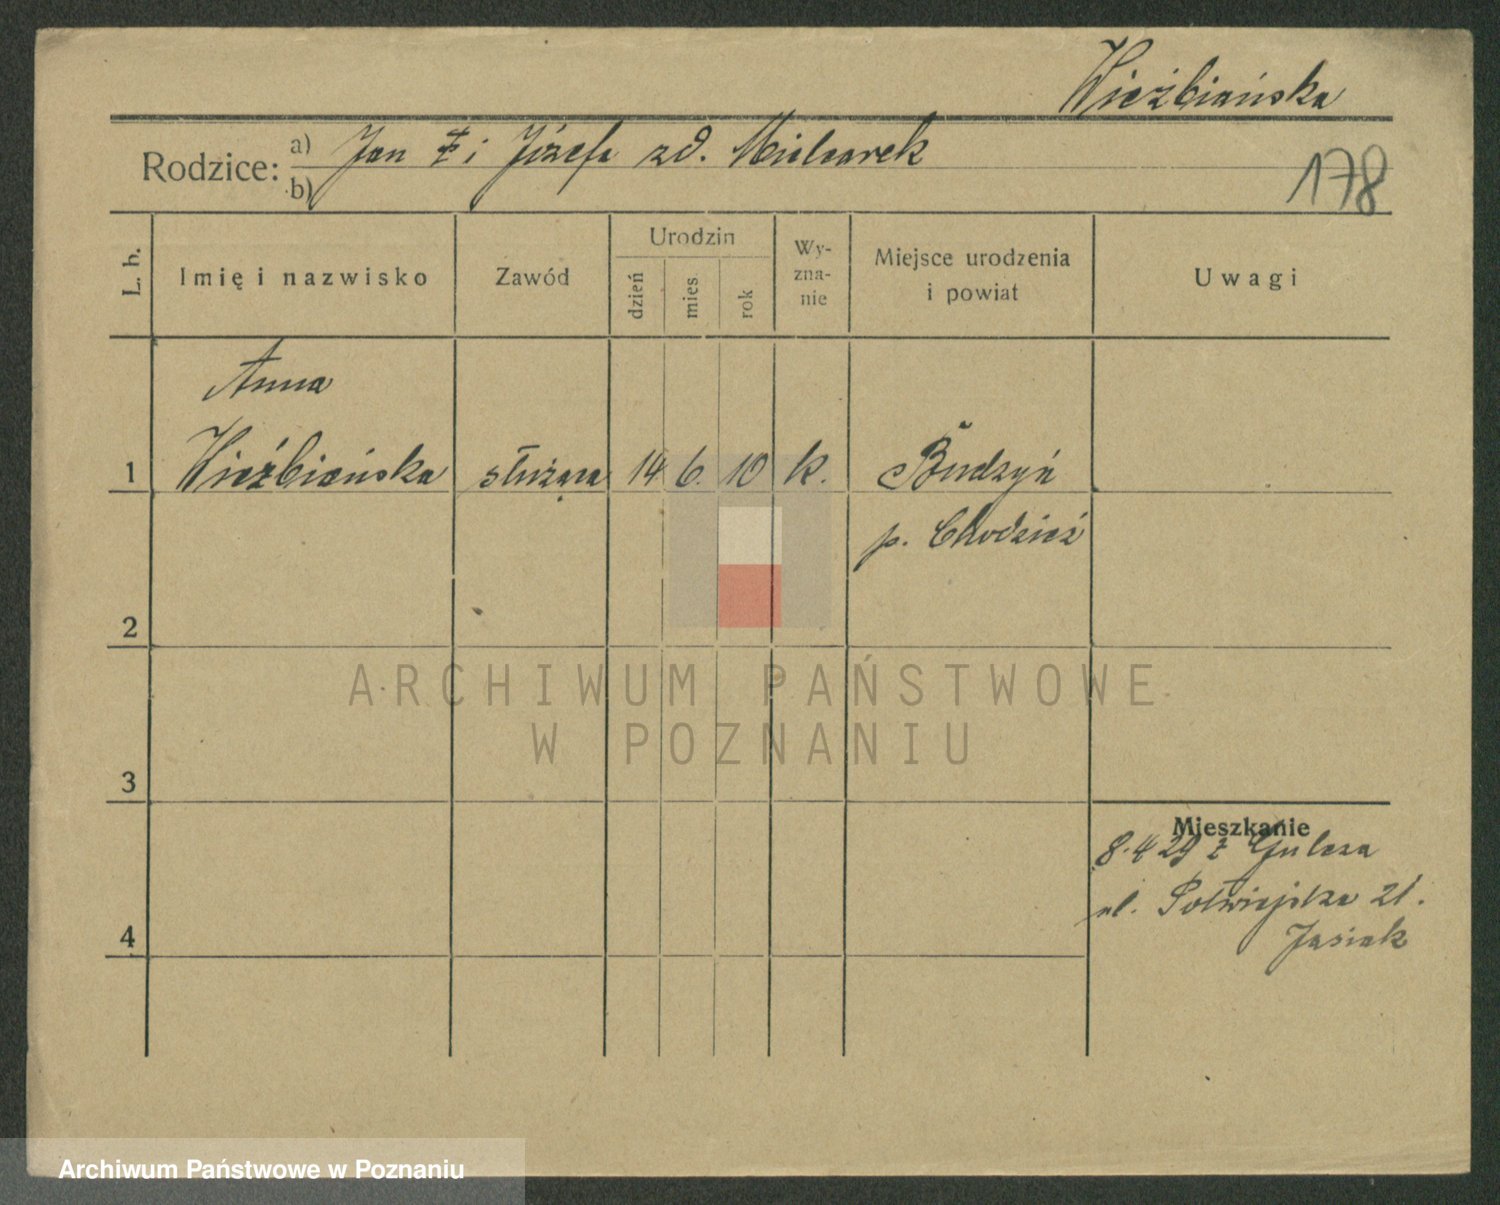 Wieźbiańska
Rodzice: a) Jan ‡ i Józefa zd. Mielcarek
b)
178
L. b.
Imię i nazwisko
Zawód
Urodzin
dzień
mies.
rok
Wy-
zna-
nie
Miejsce urodzenia
i powiat
Uwagi
Anna
1 Wieźbiańska służąca 14 6. 10 k. Budzyń
p. Chodzież
2
3
4
Mieszkanie
8.4 29 z Gulcza
ul. Półwiejska 21.
Jasiak
ARCHIWUM PAŃSTWOWE
W POZNANIU
Archiwum Państwowe w Poznaniu